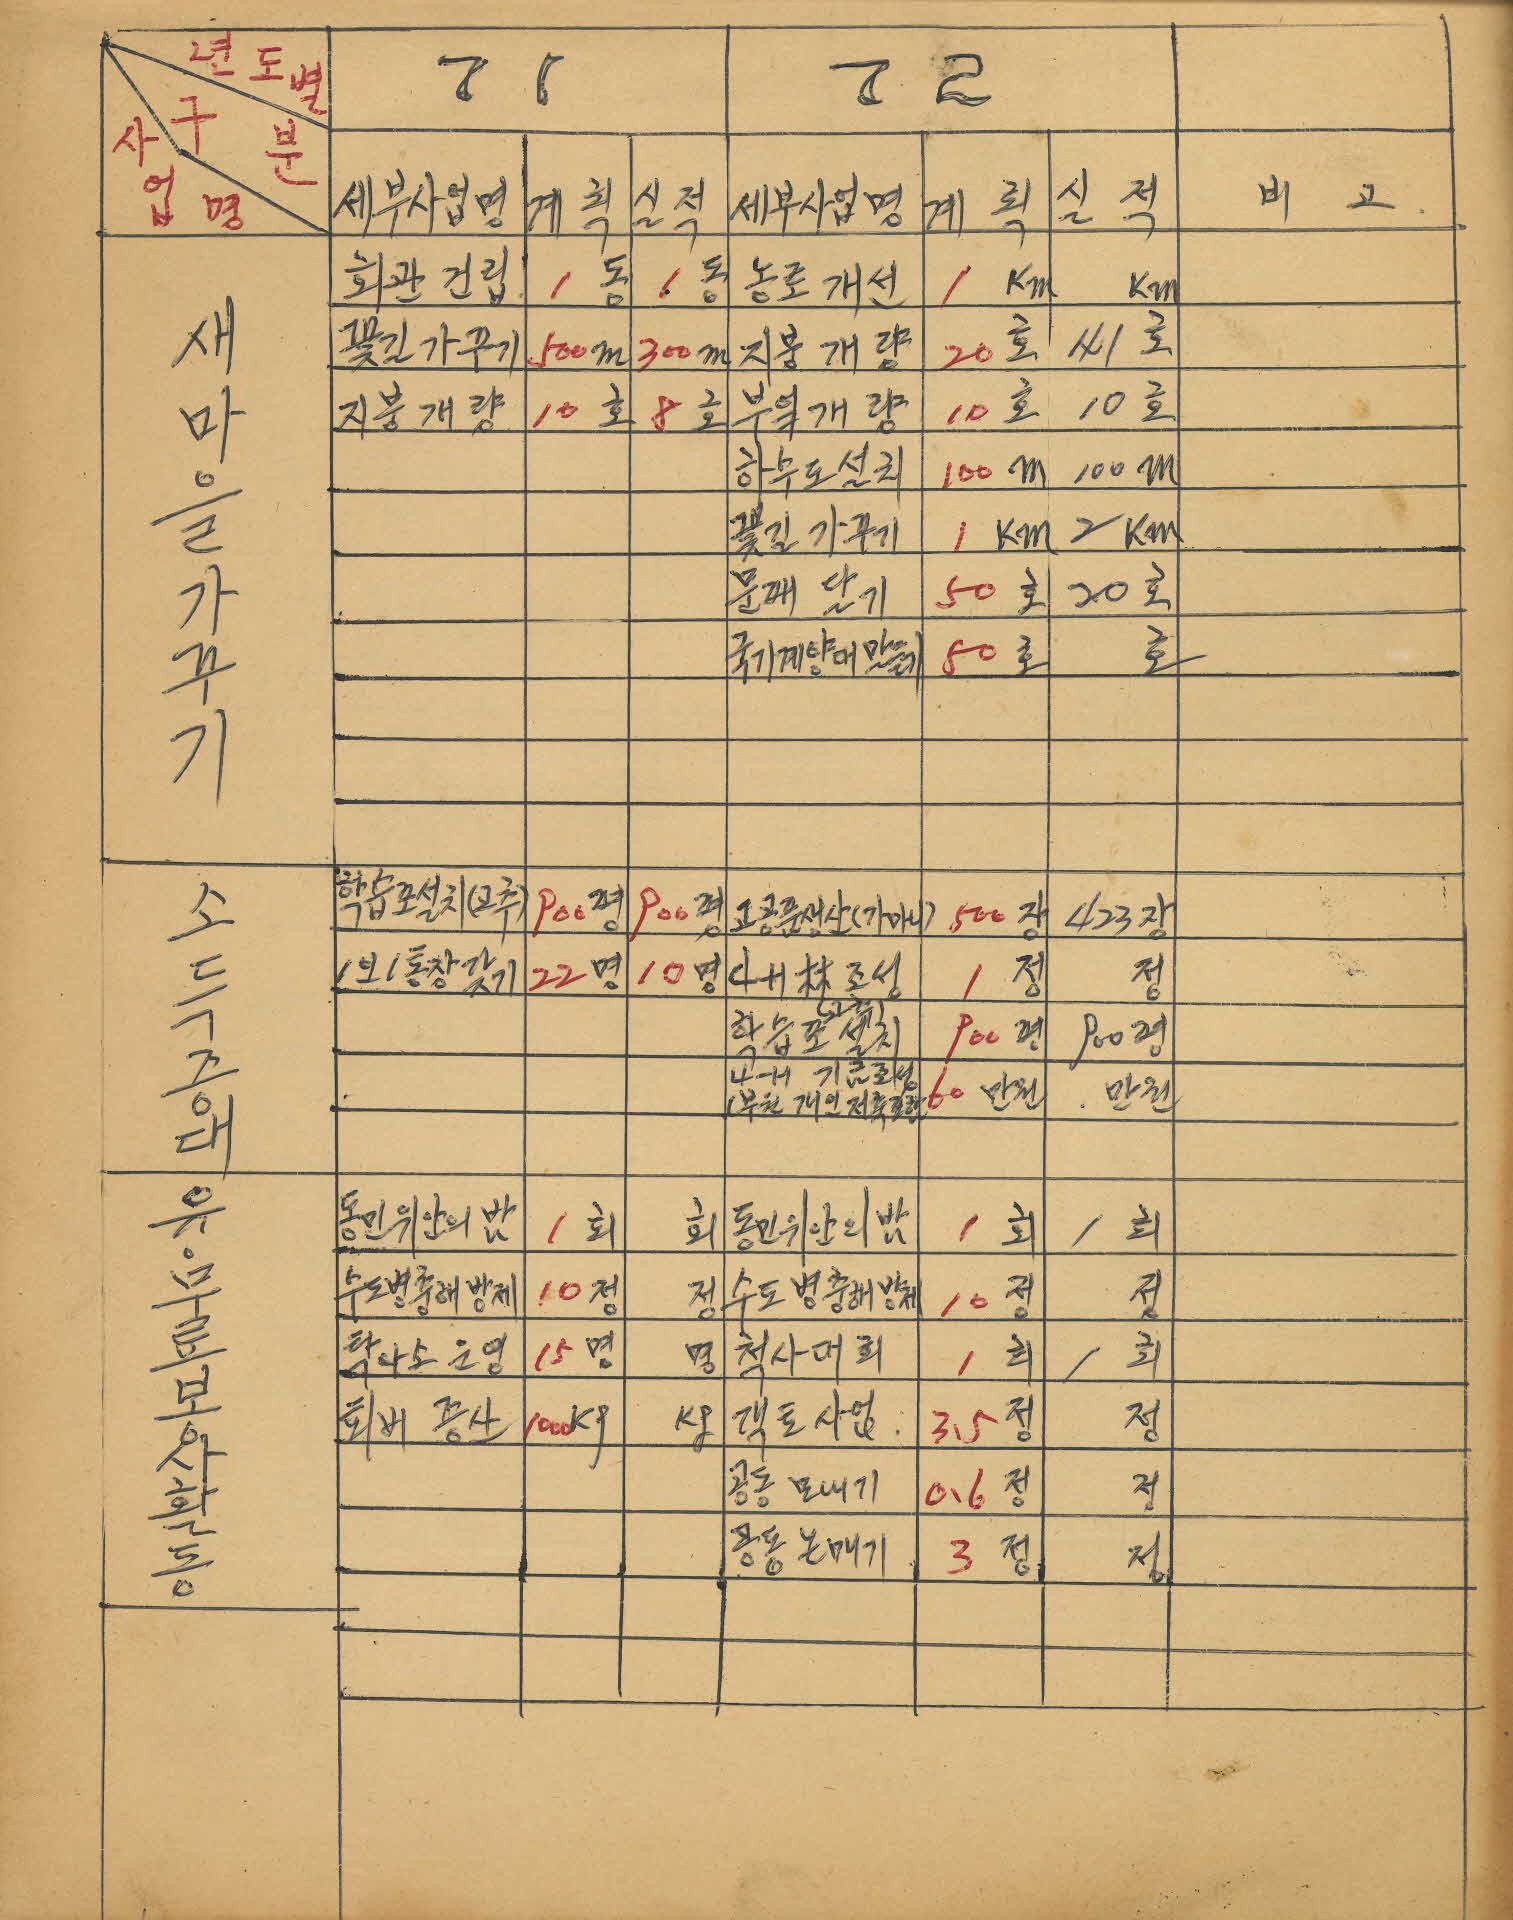 년도별
구분
사업명
71 72
세부사업명 계획 실적 세부사업명 계획 실적 비고
새마을가꾸기
회관건립 1동 1동 농로개선 1Km Km
꽃길가꾸기 500m 300m 지붕개량 20호 41호
지붕개량 10호 8호 부엌개량 10호 10호
하수도설치 100m 100m
꽃길가꾸기 1Km 2Km
문패달기 50호 20호
국기계양대만들기 50호 호
소득증대
학습포설치(고추) 900평 900평 고공품생산(가마니) 500장 423장
1인1통장갖기 22명 10명 4-H林조성 1정 정
학습포설치 900평 900평
(고추)
4-H 기금조성 60만원 만원
개인저축포함
유·무봉화활동
동민위안의밤 1회 회 동민위안의밤 1회 1회
수도병충해방제 10정 정 수도병충해방제 10정 정
탁아소운영 15명 명 척사대회 1회 1회
퇴비증산 1000Kg Kg 객토사업 3.5정 정
공동모내기 0.6정 정
공동논매기 3정 정